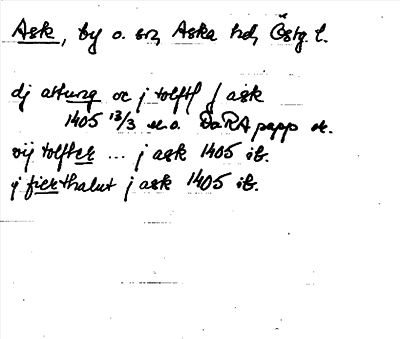 Ask, by o. sn, Aska hd, Östg. l.
dj attung oc j tolftl j ask
1405 13/3 u.o. DaRA papp or.
vij tolfter ... j ask 1405 ib.
j fierthalut j ask 1405 ib.